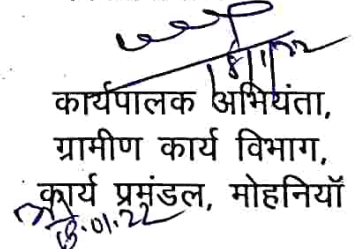 18/1/22
कार्यपालक अभियंता,
ग्रामीण कार्य विभाग,
कार्य प्रमंडल, मोहनियॉ
18.01.22